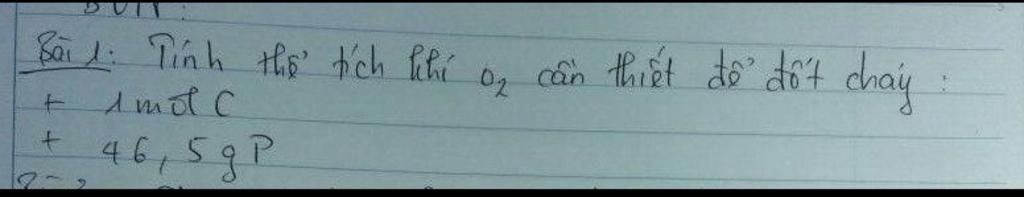 Bài 1: Tính thể tích khí O₂ cần thiết để đốt cháy :
+ 1 mol C
+ 46,5 g P